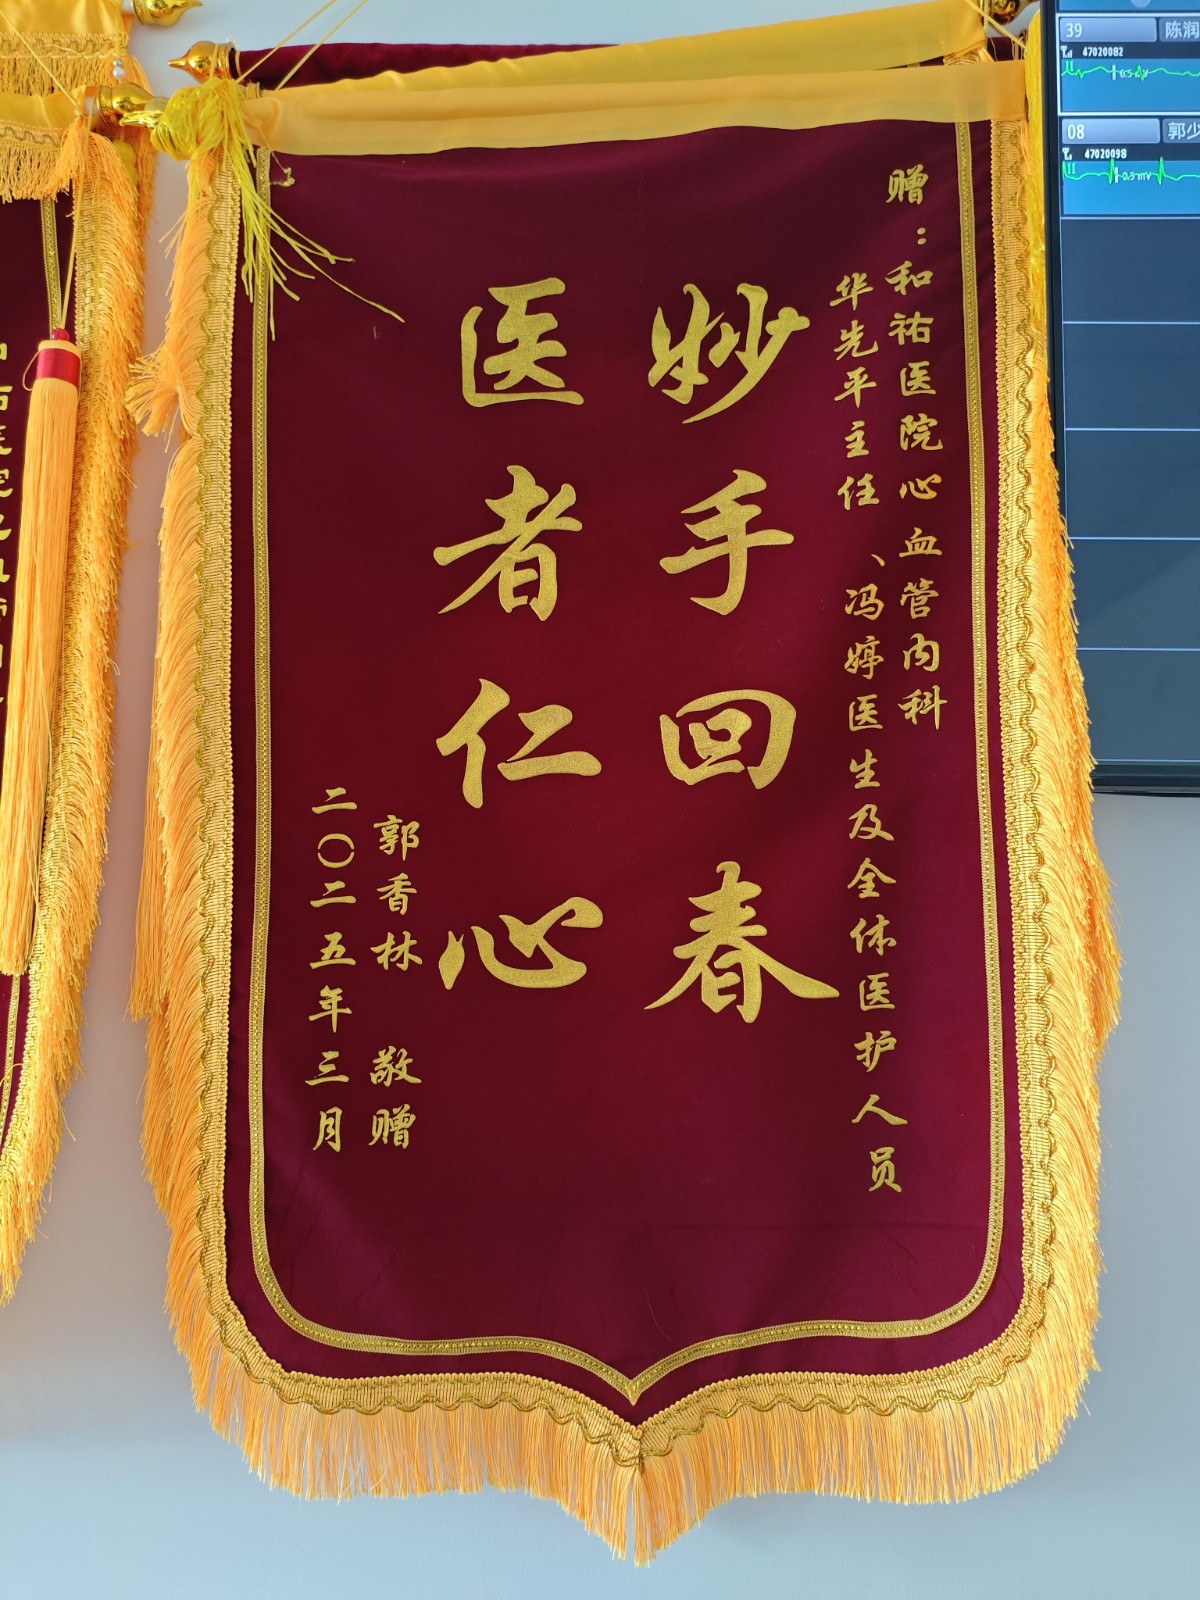 赠：和祐医院心血管内科
华先平主任、冯婷医生及全体医护人员
妙手回春
医者仁心
郭香林 敬赠
二〇二五年三月
39
陈润
47020082
II
0.5 mV
08
郭少
47020098
II
0.5 mV